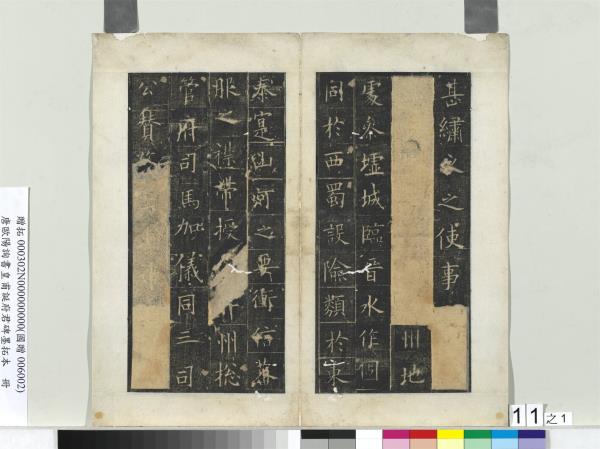 甚繡衣之使事
州地
處參墟城臨晉水作固
同於西蜀設險類於東
秦寔山河之要衝信蕃
服之襟帶授并州総
管府司馬加儀同三司
公贊務
贈拓 000302N000000000(國贈 006002)
唐歐陽詢書皇甫誕府君碑墨拓本 冊
11之1